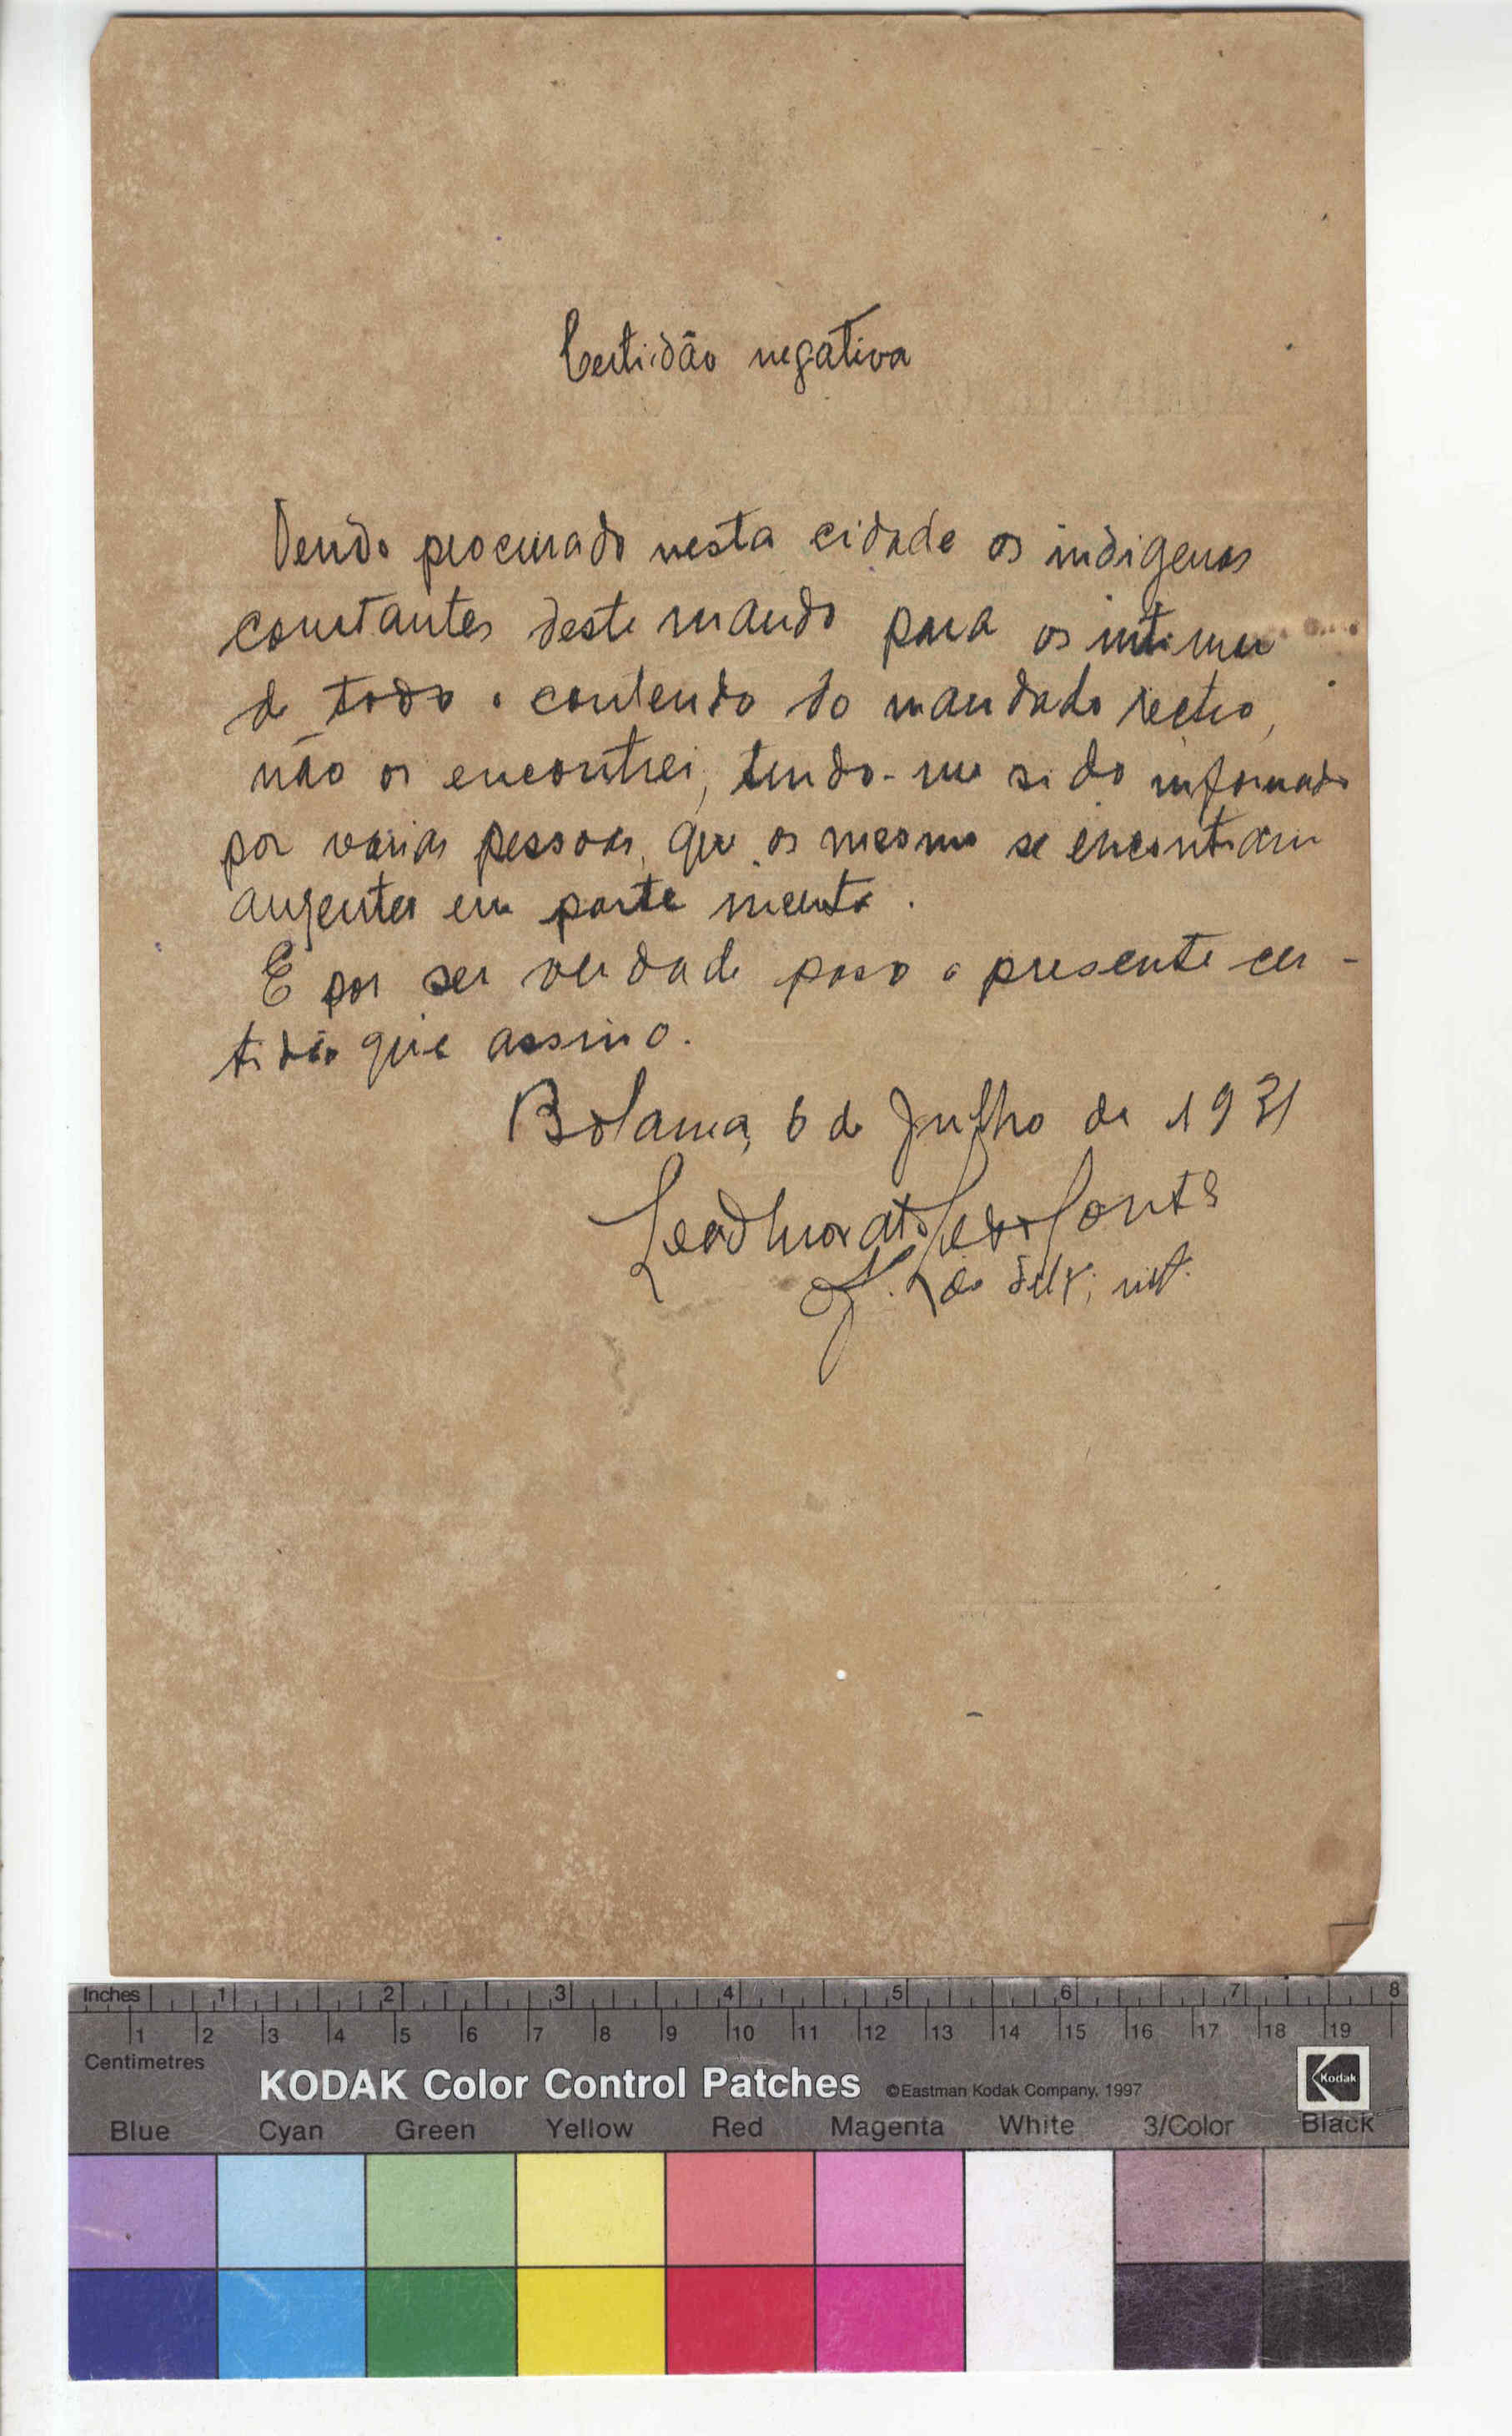 Certidão negativa
Tendo procurado nesta cidade os indigenas
constantes deste mando para os intimar
de todo o contendo do mandado rectro,
não os encontrei, tendo-me sido informado
por varias pessoas, que os mesmo se encontram
ausentes em parte incerta.
E por ser verdade passo a presente cer-
tidão que assino.
Bolama, 6 de Julho de 1931
de
Inches 1 2 3 4 5 6 7 8
1 2 3 4 5 6 7 8 9 10 11 12 13 14 15 16 17 18 19
Centimetres
KODAK Color Control Patches ©Eastman Kodak Company, 1997 Kodak
Blue Cyan Green Yellow Red Magenta White 3/Color Black